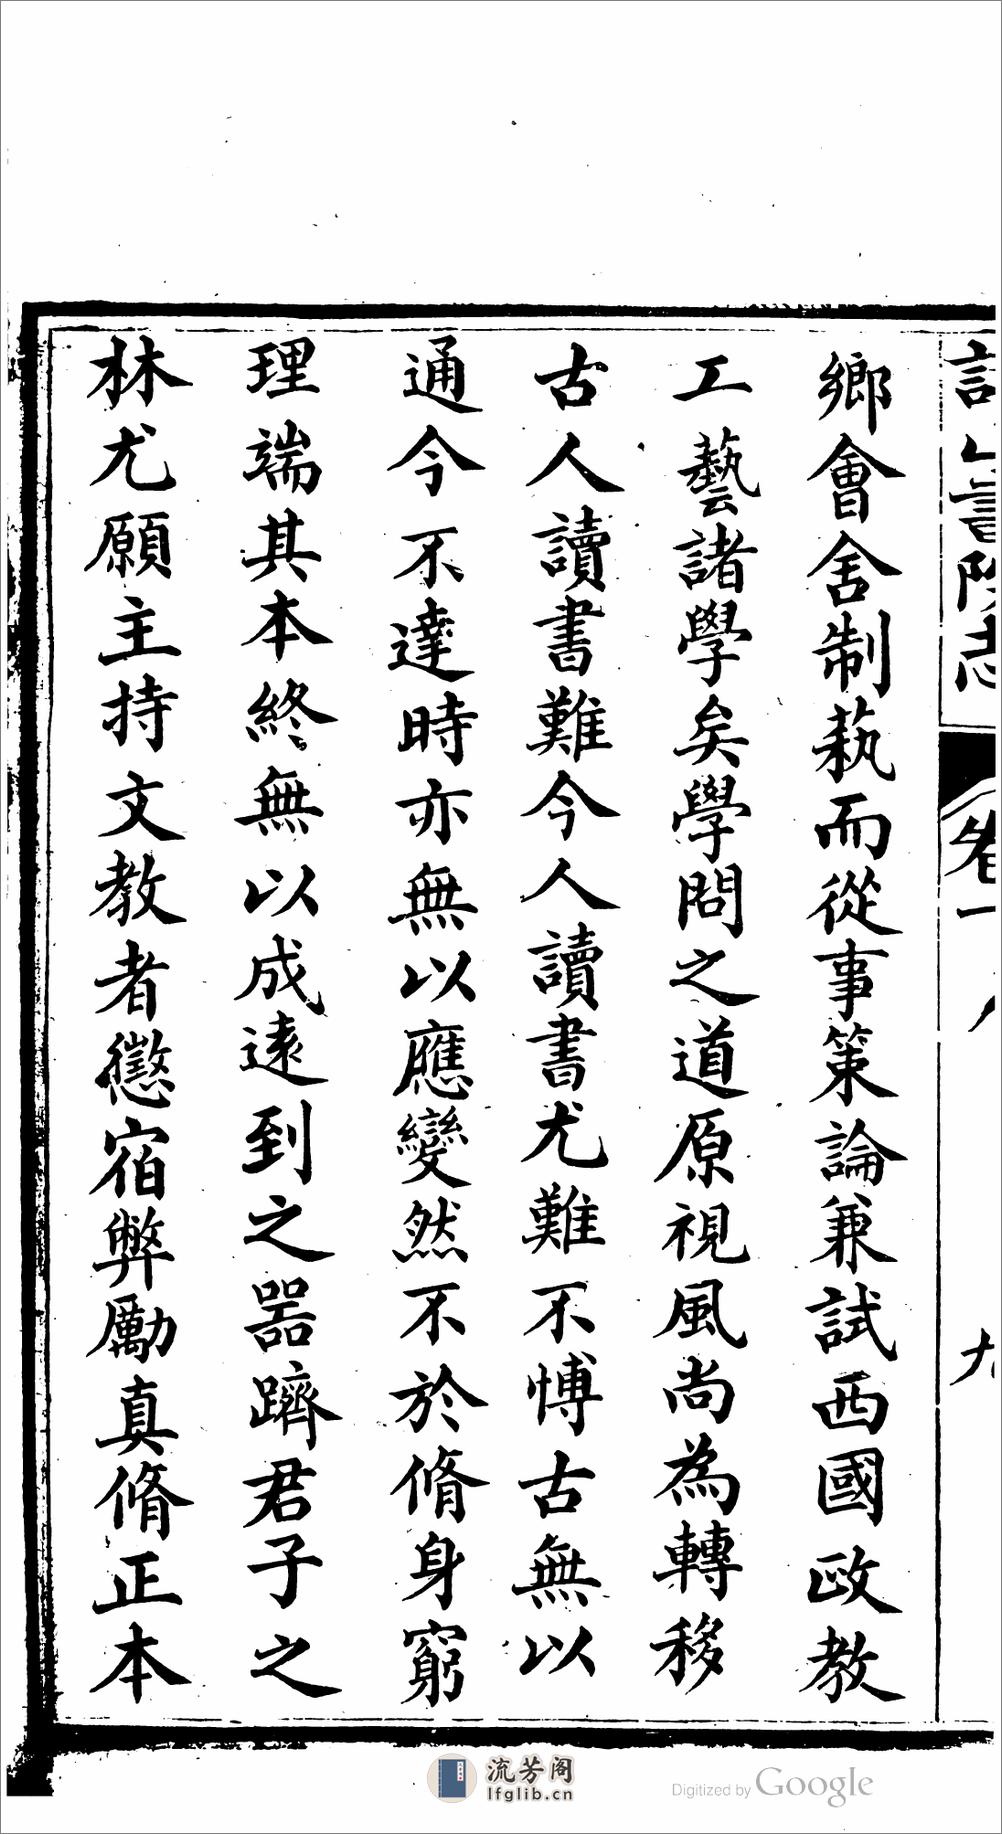 鄉會舍制蓺而從事策論兼試西國政教
工藝諸學矣學問之道原視風尚為轉移
古人讀書難今人讀書尤難不愽古無以
通今不達時亦無以應變然不於脩身窮
理端其本終無以成遠到之器躋君子之
林尤願主持文教者懲宿弊勵真脩正本
流芳阁
lfglib.cn
Digitized by Google